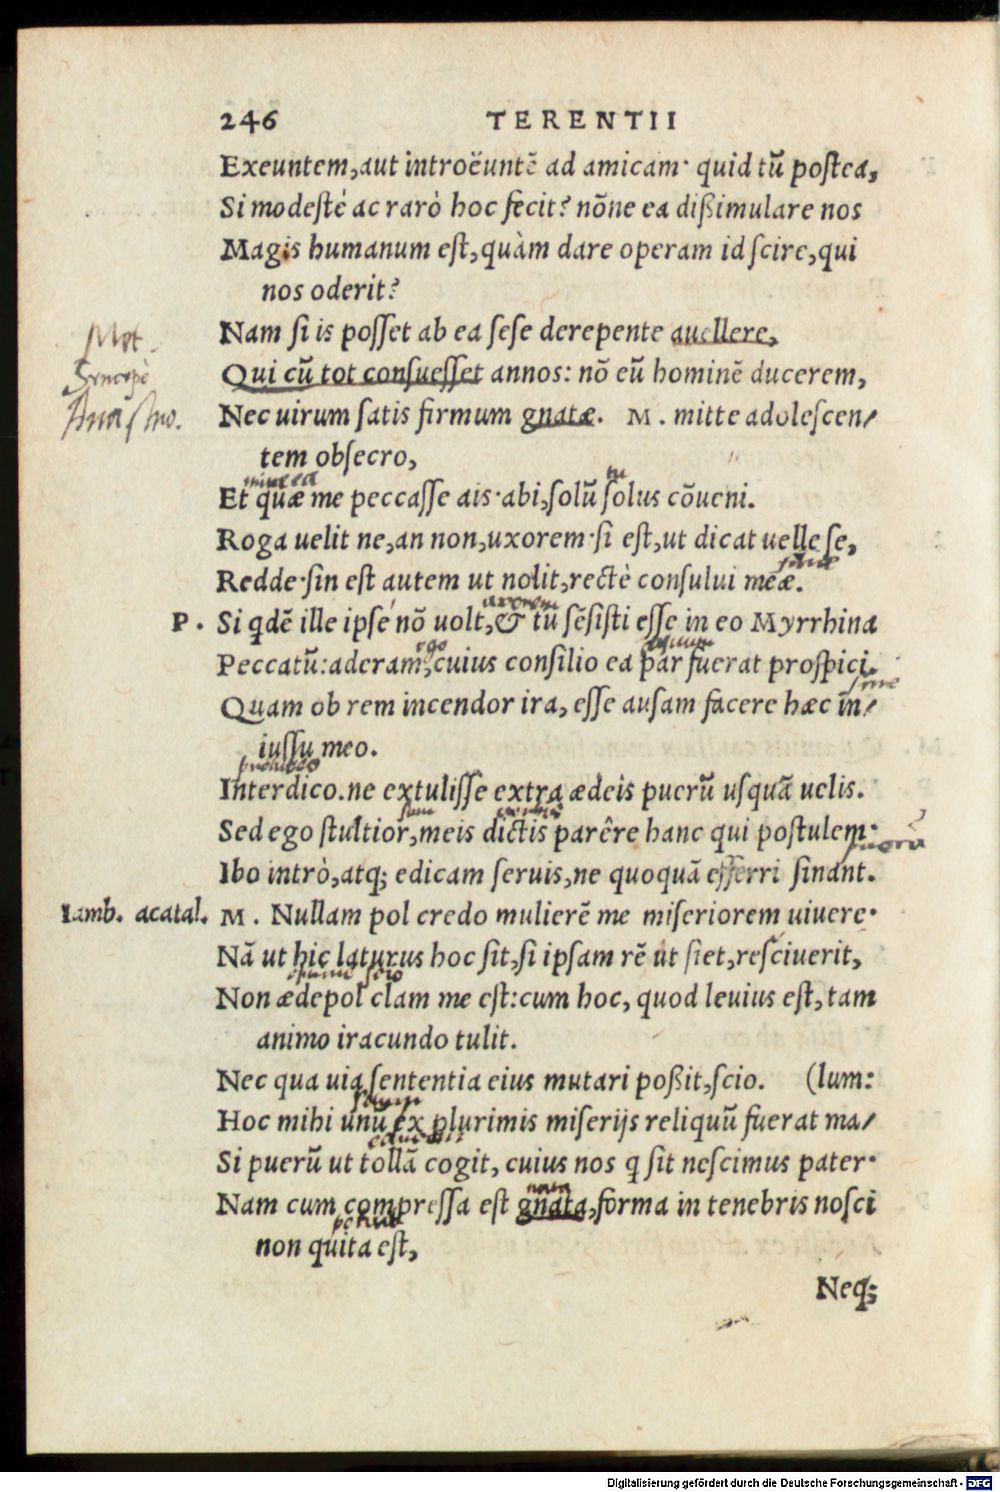 246 TERENTII
Exeuntem,aut introëuntẽ ad amicam· quid tũ postea,
Si modestè ac rarò hoc fecit? nõne ea dißimulare nos
Magis humanum est,quàm dare operam id scire,qui
nos oderit?
Nam si is posset ab ea sese derepente auellere,
Qui cũ tot consuesset annos: nõ eũ hominẽ ducerem,
Syncope
Nec uirum satis firmum gnatæ. M. mitte adolescen/
tem obsecro,
tu
Et quæ me peccasse ais·abi,solũ solus cõueni.
Roga uelit ne,an non,uxorem·si est,ut dicat uelle se,
Redde·sin est autem ut nolit,rectè consului meæ.
uxorem
P. Si qdẽ ille ipse nõ uolt,& tũ sẽsisti esse in eo Myrrhina
ego
Peccatũ:aderam,cuius consilio ea par fuerat prospici.
Quam ob rem incendor ira, esse ausam facere hæc in/
iussu meo.
prohibeo
Interdico.ne extulisse extra ædeis puerũ usquã uelis.
sum
Sed ego stultior,meis dictis parêre hanc qui postulem·
Ibo intrò,atq; edicam seruis,ne quoquã efferri sinant.
Iamb. acatal. M. Nullam pol credo mulierẽ me miseriorem uiuere·
Nã ut hic laturus hoc sit,si ipsam rẽ ut siet,resciuerit,
scio
Non ædepol clam me est:cum hoc, quod leuius est, tam
animo iracundo tulit.
Nec qua uia sententia eius mutari poßit,scio. (lum:
Hoc mihi unũ ex plurimis miserijs reliquũ fuerat ma/
Si puerũ ut tollã cogit, cuius nos q sit nescimus pater·
Nam cum compressa est gnata,forma in tenebris nosci
non quita est,
Neq;
Digitalisierung gefördert durch die Deutsche Forschungsgemeinschaft - DFG